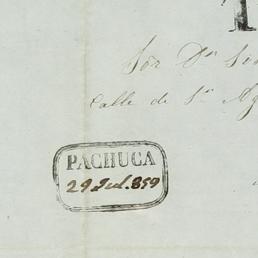 Sor Dn
Calle de Sn Ag
PACHUCA
29 Jul. 859